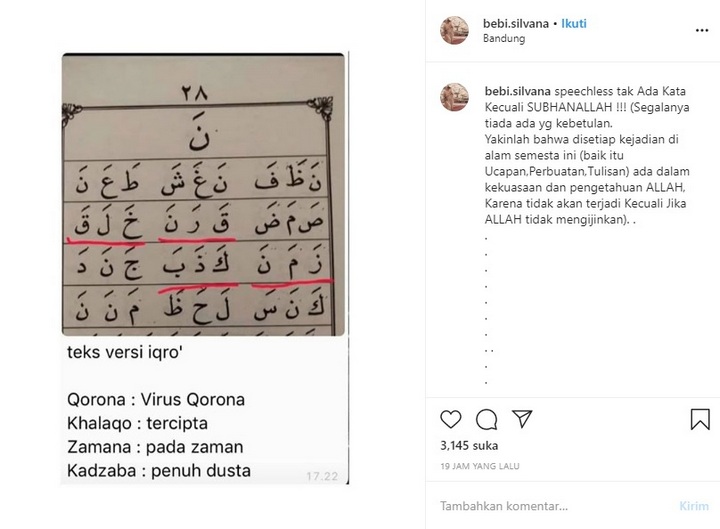 ٢٨
نَ
نَ ظَ فَ نَ غَ شَ طَ عَ نَ
صَ مَ ضَ قَ رَ نَ خَ لَ قَ
زَ مَ نَ كَ ذَ بَ جَ نَ دَ
كَ نَ سَ لَ حَ ظَ مَ نَ نَ
teks versi iqro'
Qorona : Virus Qorona
Khalaqo : tercipta
Zamana : pada zaman
Kadzaba : penuh dusta
17.22
bebi.silvana • Ikuti
Bandung
bebi.silvana speechless tak Ada Kata
Kecuali SUBHANALLAH !!! (Segalanya
tiada ada yg kebetulan.
Yakinlah bahwa disetiap kejadian di
alam semesta ini (baik itu
Ucapan,Perbuatan,Tulisan) ada dalam
kekuasaan dan pengetahuan ALLAH,
Karena tidak akan terjadi Kecuali Jika
ALLAH tidak mengijinkan). .
.
.
.
.
.
.
.
. .
.
.
3,145 suka
19 JAM YANG LALU
Tambahkan komentar...
Kirim